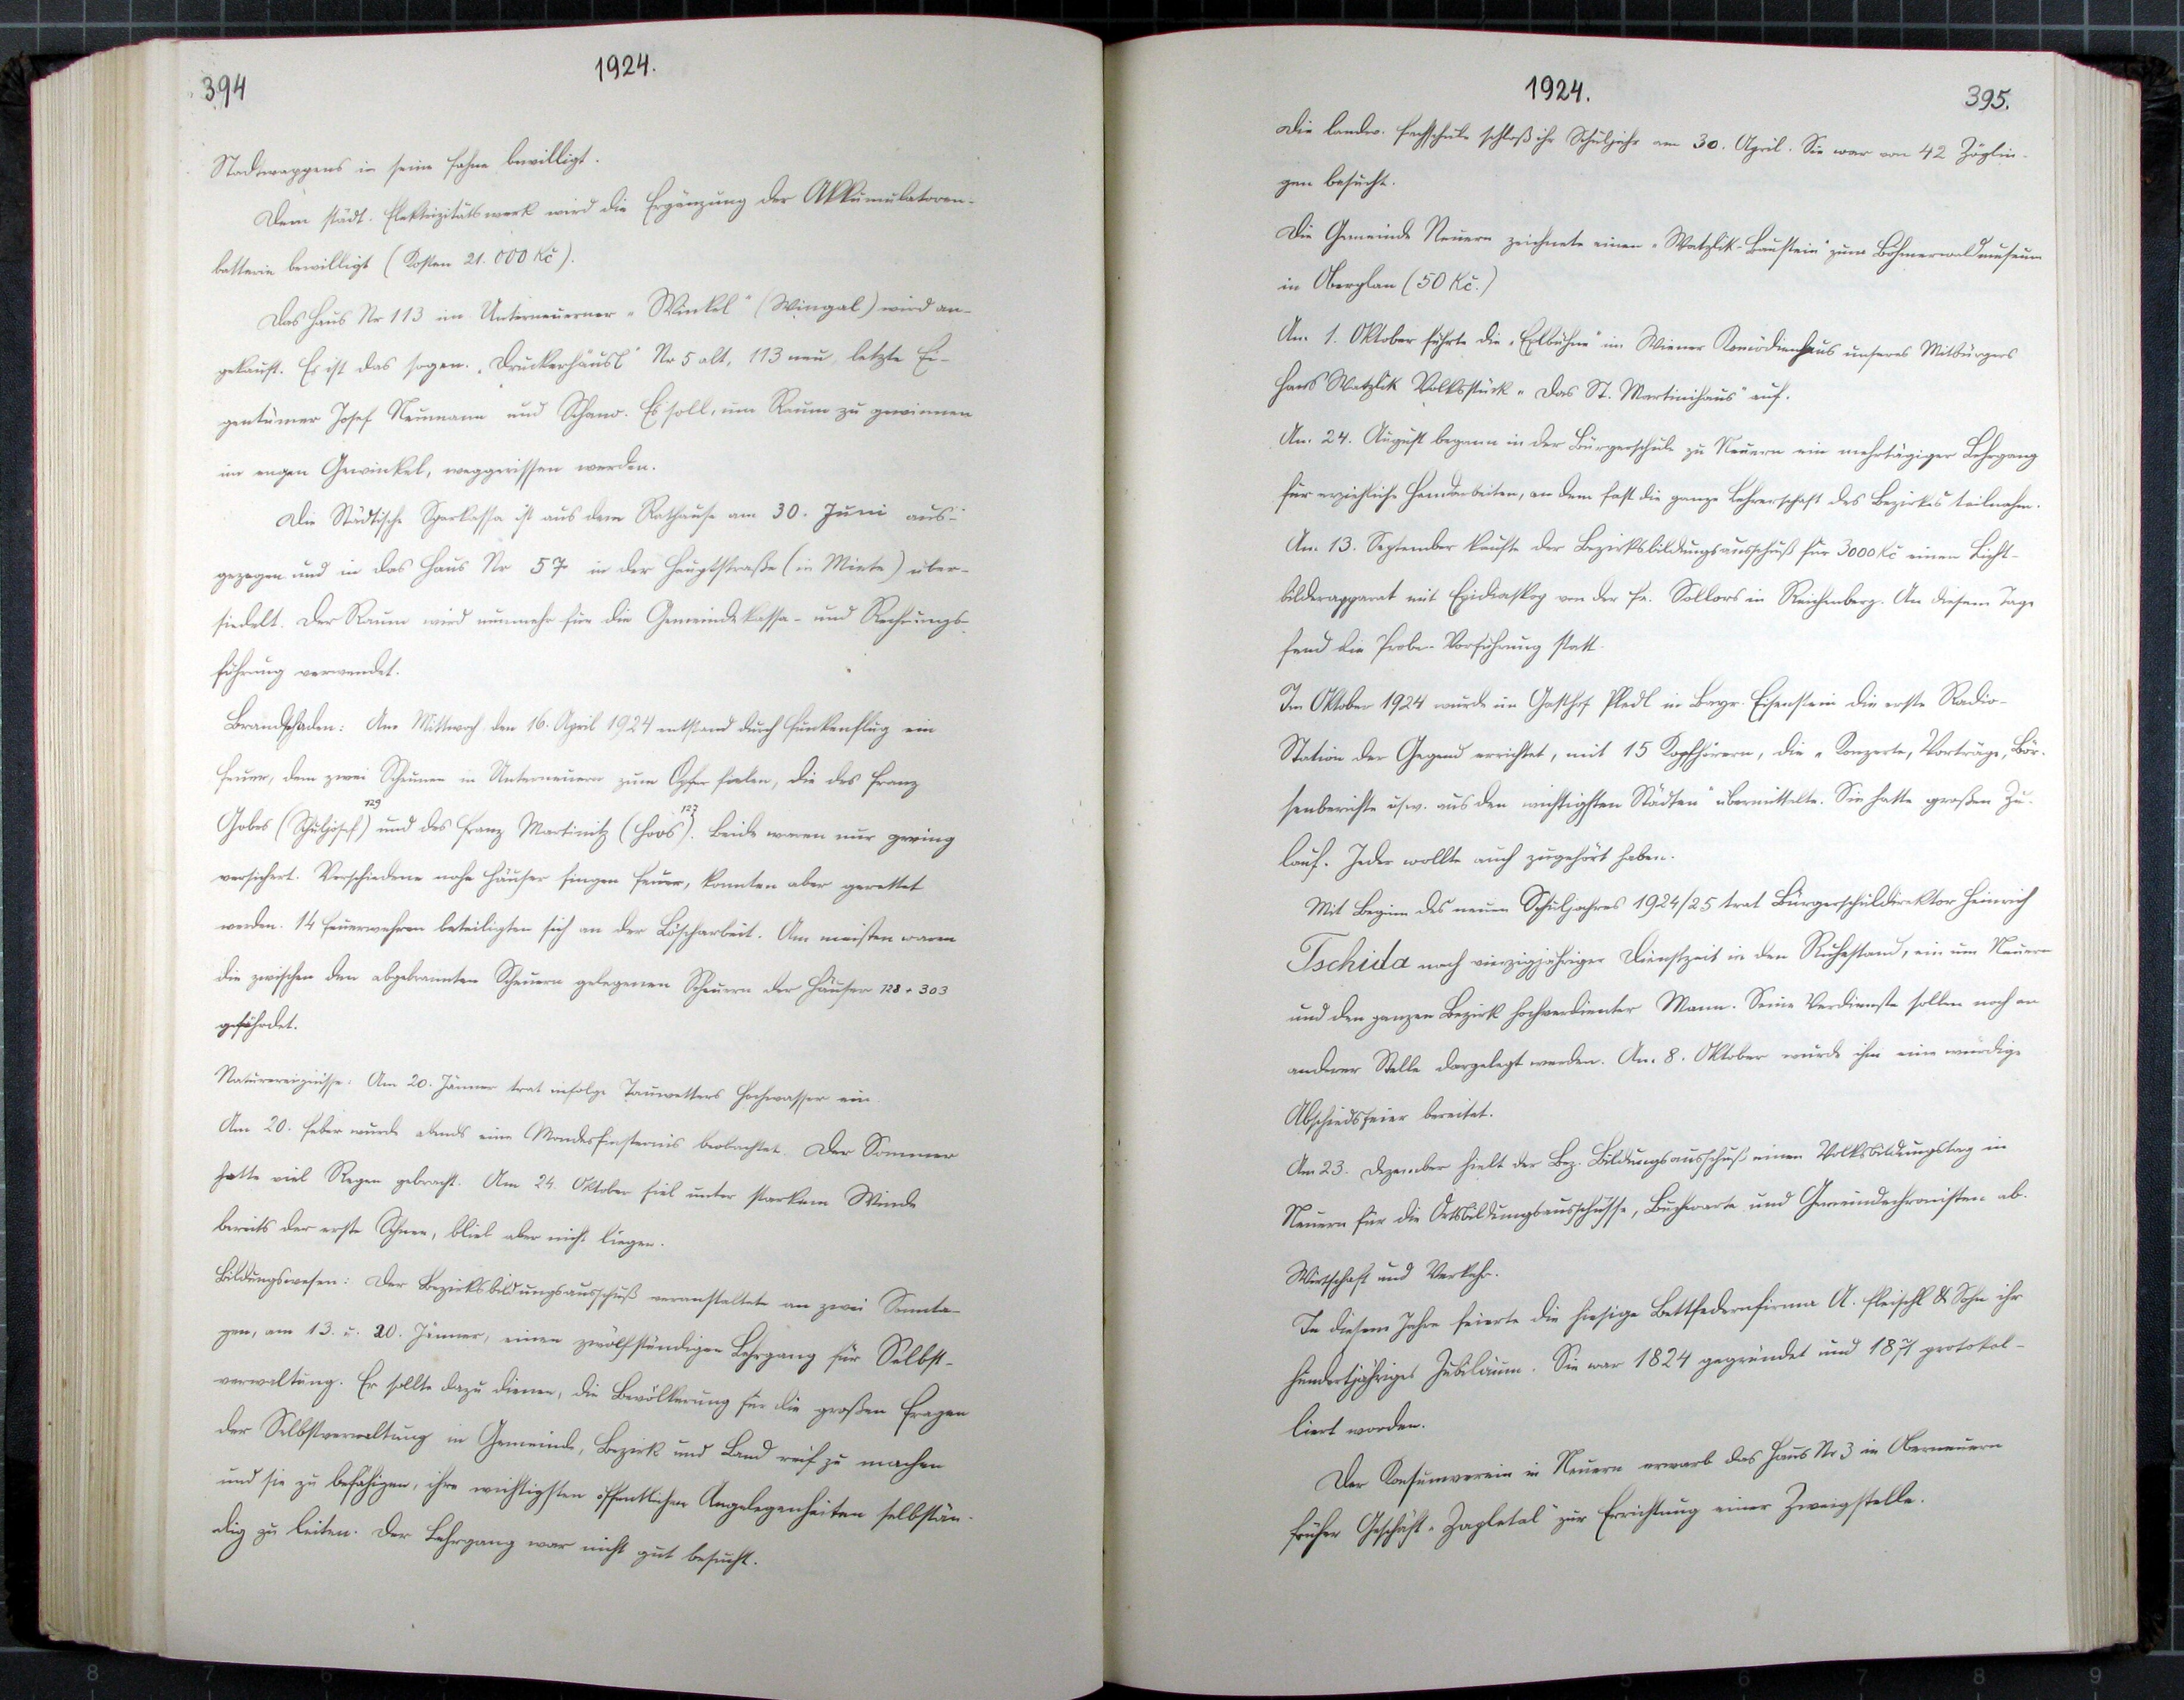 394
1924.
Stadtwappens in seine Fahne bewilligt.
Dem städt. Elektrizitätswerk wird die Ergänzung der Akkumulatoren-
batterie bewilligt (Kosten 21.000 Kč).
Das Haus Nr 113 im Unterneuerner „Winkel“ (Wingal) wird an-
gekauft. Es ist das sogen. „Druckerhäusl“ Nr 5 alt, 113 neu, letzte Ei-
gentümer Josef Neumann und Schano. Es soll, um Raum zu gewinnen
im engen Gewinkel, weggerissen werden.
Die Städtische Sparkassa ist aus dem Rathause am 30. Juni aus-
gezogen und in das Haus Nr 57 in der Hauptstraße (in Miete) über-
siedelt. Der Raum wird nunmehr für die Gemeindekassa- und Rechnungs-
führung verwendet.
Brandschaden: Am Mittwoch den 16. April 1924 entstand durch Funkenflug ein
Feuer, dem zwei Scheunen in Unterneuern zum Opfer fielen, die des Franz
Gobes (Schuljosef) 129 und des Franz Martinitz (Hoos) 127. Beide waren nur gering
versichert. Verschiedene nahe Häuser fingen Feuer, konnten aber gerettet
werden. 14 Feuerwehren beteiligten sich an der Löscharbeit. Am meisten waren
die zwischen den abgebrannten Scheuern gelegenen Scheuern der Häuser 128 + 303
gefährdet.
Naturereignisse: Am 20. Jänner trat infolge Tauwetters Hochwasser ein.
Am 20. Feber wurde abends eine Mondesfinsternis beobachtet. Der Sommer
hatte viel Regen gebracht. Am 24. Oktober fiel unter starkem Winde
bereits der erste Schnee, blieb aber nicht liegen.
Bildungswesen: Der Bezirksbildungsausschuß veranstaltete an zwei Sonnta-
gen, am 13. u. 20. Jänner, einen zwölfstündigen Lehrgang für Selbst-
verwaltung. Er sollte dazu dienen, die Bevölkerung für die großen Fragen
der Selbstverwaltung in Gemeinde, Bezirk und Land reif zu machen
und sie zu befähigen, ihre wichtigsten öffentlichen Angelegenheiten selbstän-
dig zu leiten. Der Lehrgang war nicht gut besucht.
1924.
395.
Die landw. Fachschule schloß ihr Schuljahr am 30. April. Sie war von 42 Zöglin-
gen besucht.
Die Gemeinde Neuern zeichnete einen „Watzlik-Baustein“ zum Böhmerwaldmuseum
in Oberplan (50 Kč.)
Am 1. Oktober führte die „Exlbühne“ im Wiener Komödienhaus unseres Mitbürgers
Hans Watzlik Volksstück „Das St. Martinihaus“ auf.
Am 24. August begann in der Bürgerschule zu Neuern ein mehrtägiger Lehrgang
für erziehliche Handarbeiten, an dem fast die ganze Lehrerschaft des Bezirkes teilnahm.
Am 13. September kaufte der Bezirksbildungsausschuß für 3000 Kč einen Licht-
bilderapparat mit Epidiaskop von der Fa. Sollors in Reichenberg. An diesem Tage
fand die Probe-Vorführung statt.
Im Oktober 1924 wurde im Gasthof Pledl in Bayr. Eisenstein die erste Radio-
Station der Gegend errichtet, mit 15 Kopfhörern, die „Konzerte, Vorträge, Bör-
senberichte usw. aus den wichtigsten Städten“ übermittelte. Sie hatte großen Zu-
lauf. Jeder wollte auch zugehört haben.
Mit Beginn des neuen Schuljahres 1924/25 trat Bürgerschuldirektor Heinrich
Tschida nach vierzigjähriger Dienstzeit in den Ruhestand, ein um Neuern
und den ganzen Bezirk hochverdienter Mann. Seine Verdienste sollen noch an
anderer Stelle dargelegt werden. Am 8. Oktober wurde ihm eine würdige
Abschiedsfeier bereitet.
Am 23. Dezember hielt der Bez. Bildungsausschuß einen Volksbildungstag in
Neuern für die Ortsbildungsausschüsse, Buchwarte und Gemeindechronisten ab.
Wirtschaft und Verkehr.
In diesem Jahre feierte die hiesige Bettfedernfirma A. Fleischl & Sohn ihr
hundertjähriges Jubiläum. Sie war 1824 gegründet und 1871 protokol-
liert worden.
Der Konsumverein in Neuern erwarb das Haus Nr 3 in Oberneuern
früher Geschäft „Zapletal“ zur Errichtung einer Zweigstelle.
8 7 6 5 6 7 8 9